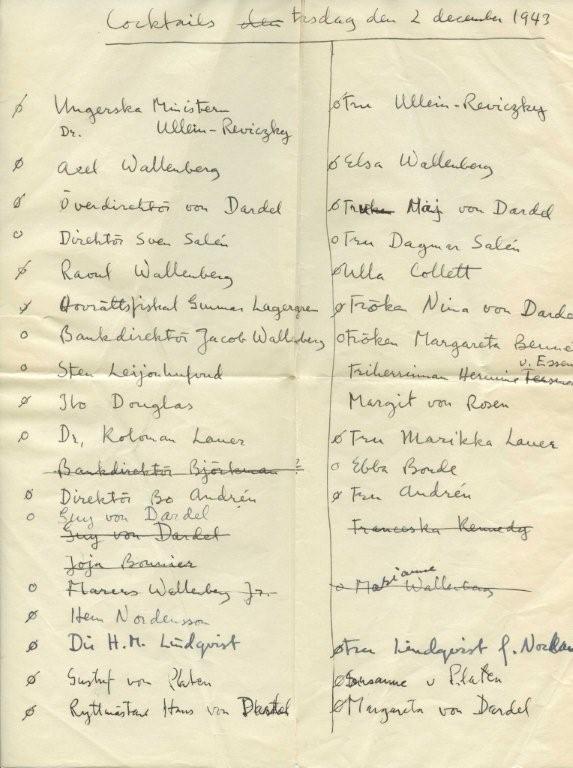 Cocktails den tisdag den 2 december 1943
Ungerska Ministern
Dr. Ullein-Reviczky
Fru Ullein-Reviczky
Axel Wallenberg
Elsa Wallenberg
Överdirektör von Dardel
Maj von Dardel
Direktör Sven Salén
Fru Dagmar Salén
Raoul Wallenberg
Ulla Collett
Hovrättsfiskal Gunnar Lagergren
Fröken Nina von Dardel
Bankdirektör Jacob Wallenberg
Fröken Margareta
v. Essen
Sten Leijonhufvud
Friherrinnan Hermine
Ibo Douglas
Margit von Rosen
Dr. Koloman Lauer
Fru Marikka Lauer
Bankdirektör Björkman
Ebba Bonde
Direktör Bo Andrén
Fru Andrén
Guy von Dardel
Guy von Dardel
Franceska Kennedy
Joja Bonnier
Marcus Wallenberg Jr.
Marianne Wallenberg
Hem Nordensson
Dir H.M. Lindqvist
Fru Lindqvist f.
Gustaf von Platen
Susanne v Platen
Ryttmästare Hans von Dardel
Margareta von Dardel